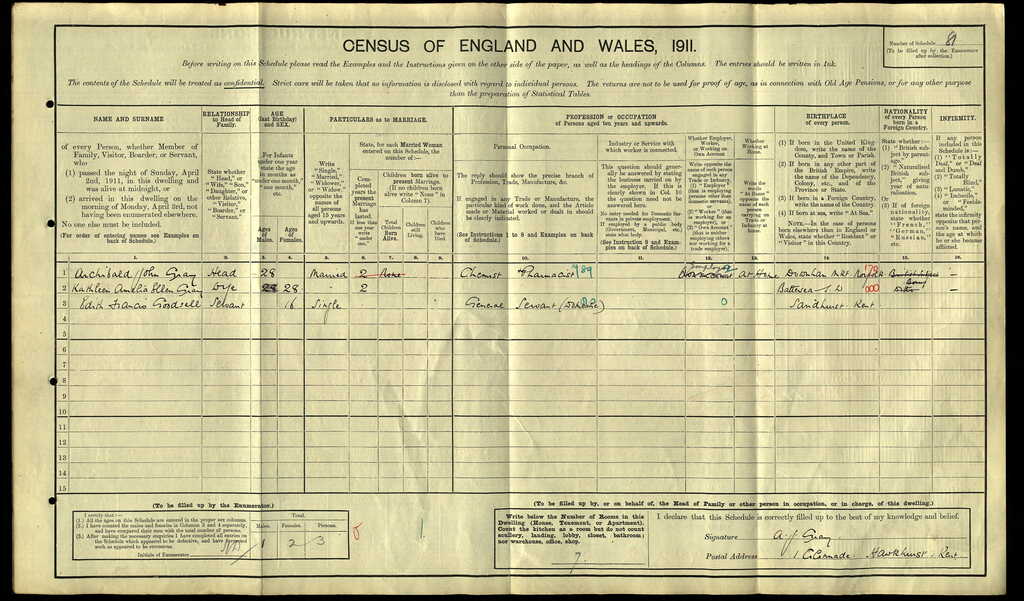 CENSUS OF ENGLAND AND WALES, 1911.
Number of Schedule 89
(To be filled up by the Enumerator after collection.)
Before writing on this Schedule please read the Examples and the Instructions given on the other side of the paper, as well as the headings of the Columns. The entries should be written in Ink.
The contents of the Schedule will be treated as confidential. Strict care will be taken that no information is disclosed with regard to individual persons. The returns are not to be used for proof of age, as in connection with Old Age Pensions, or for any other purpose
than the preparation of Statistical Tables.
NAME AND SURNAME
of every Person, whether Member of
Family, Visitor, Boarder, or Servant,
who
(1) passed the night of Sunday, April
2nd, 1911, in this dwelling and
was alive at midnight, or
(2) arrived in this dwelling on the
morning of Monday, April 3rd, not
having been enumerated elsewhere.
No one else must be included.
(For order of entering names see Examples on
back of Schedule.)
RELATIONSHIP
to Head of
Family.
State whether
"Head," or
"Wife," "Son,"
"Daughter," or
other Relative,
"Visitor,"
"Boarder," or
"Servant."
AGE
(last Birthday)
and SEX.
For Infants
under one year
state the age
in months as
"under one month,"
"one month,"
etc.
Ages
of
Males.
Ages
of
Females.
PARTICULARS as to MARRIAGE.
Write
"Single,"
"Married,"
"Widower,"
or "Widow,"
opposite the
names of
all persons
aged 15 years
and upwards.
State, for each Married Woman
entered on this Schedule, the
number of:—
Completed
years the
present
Marriage
has
lasted.
If less
than one
year
write
"under
one."
Children born alive to
present Marriage.
(If no children born
alive write "None" in
Column 7).
Total
Children
Born
Alive.
Children
still
Living.
Children
who
have
Died.
PROFESSION or OCCUPATION
of Persons aged ten years and upwards.
Personal Occupation.
The reply should show the precise branch of
Profession, Trade, Manufacture, &c.
If engaged in any Trade or Manufacture, the
particular kind of work done, and the Article
made or Material worked or dealt in should
be clearly indicated.
(See Instructions 1 to 8 and Examples on back
of Schedule.)
Industry or Service with
which worker is connected.
This question should generally
be answered by stating
the business carried on by
the employer. If this is
clearly shown in Col. 10
the question need not be
answered here.
No entry needed for Domestic Servants
in private employment.
If employed by a public body
(Government, Municipal, etc.)
state what body.
(See Instruction 9 and Examples
on back of Schedule.)
Whether Employer,
Worker, or
Working on
Own Account.
Write opposite the
name of each person
engaged in any
Trade or Industry,
(1) "Employer"
(that is employing
persons other than
domestic servants),
or
(2) "Worker" (that
is working for an
employer), or
(3) "Own Account"
(that is neither
employing others
nor working for a
trade employer).
Whether
Working at
Home.
Write the
words
"At Home"
opposite the
name of each
person
carrying on
Trade or
Industry at
home.
BIRTHPLACE
of every person.
(1) If born in the United Kingdom,
write the name of the
County, and Town or Parish.
(2) If born in any other part of
the British Empire, write
the name of the Dependency,
Colony, etc., and of the
Province or State.
(3) If born in a Foreign Country,
write the name of the Country.
(4) If born at sea, write "At Sea."
NOTE.—In the case of persons
born elsewhere than in England or
Wales, state whether "Resident" or
"Visitor" in this Country.
NATIONALITY
of every Person
born in a
Foreign Country.
State whether:—
(1) "British
subject by
parentage,"
(2) "Naturalised
British subject,"
giving
year of naturalisation.
Or
(3) If of foreign
nationality,
state whether
"French,"
"German,"
"Russian,"
etc.
INFIRMITY.
If any person
included in this
Schedule is:—
(1) "Totally
Deaf," or "Deaf
and Dumb,"
(2) "Totally
Blind,"
(3) "Lunatic,"
(4) "Imbecile,"
or "Feeble-minded,"
state the infirmity
opposite that person's
name, and
the age at which
he or she became
afflicted.
1 Archibald John Gray Head 28 Married 2 None Chemist Pharmacist 789 Employer At Home Downham Mkt Norfolk 178
2 Kathleen Amelia Ellen Gray Wife 28 28 " 2 Battersea S.W 000 —
3 Edith Francis Goodsell Servant 16 Single General Servant (Domestic) 0 Sandhurst Kent
4
5
6
7
8
9
10
11
12
13
14
15
(To be filled up by the Enumerator.)
I certify that:—
(1.) All the ages on this Schedule are entered in the proper sex columns.
(2.) I have counted the males and females in Columns 3 and 4 separately,
and have compared their sum with the total number of persons.
(3.) After making the necessary enquiries I have completed all entries on
the Schedule which appeared to be defective, and have corrected
such as appeared to be erroneous.
Initials of Enumerator
Total.
Males. Females. Persons.
1 2 3
(To be filled up by, or on behalf of, the Head of Family or other person in occupation, or in charge, of this dwelling.)
Write below the Number of Rooms in this
Dwelling (House, Tenement, or Apartment).
Count the kitchen as a room but do not count
scullery, landing, lobby, closet, bathroom;
nor warehouse, office, shop.
7.
I declare that this Schedule is correctly filled up to the best of my knowledge and belief.
Signature A. J. Gray
Postal Address 1 Colonnade. Hawkhurst. Kent